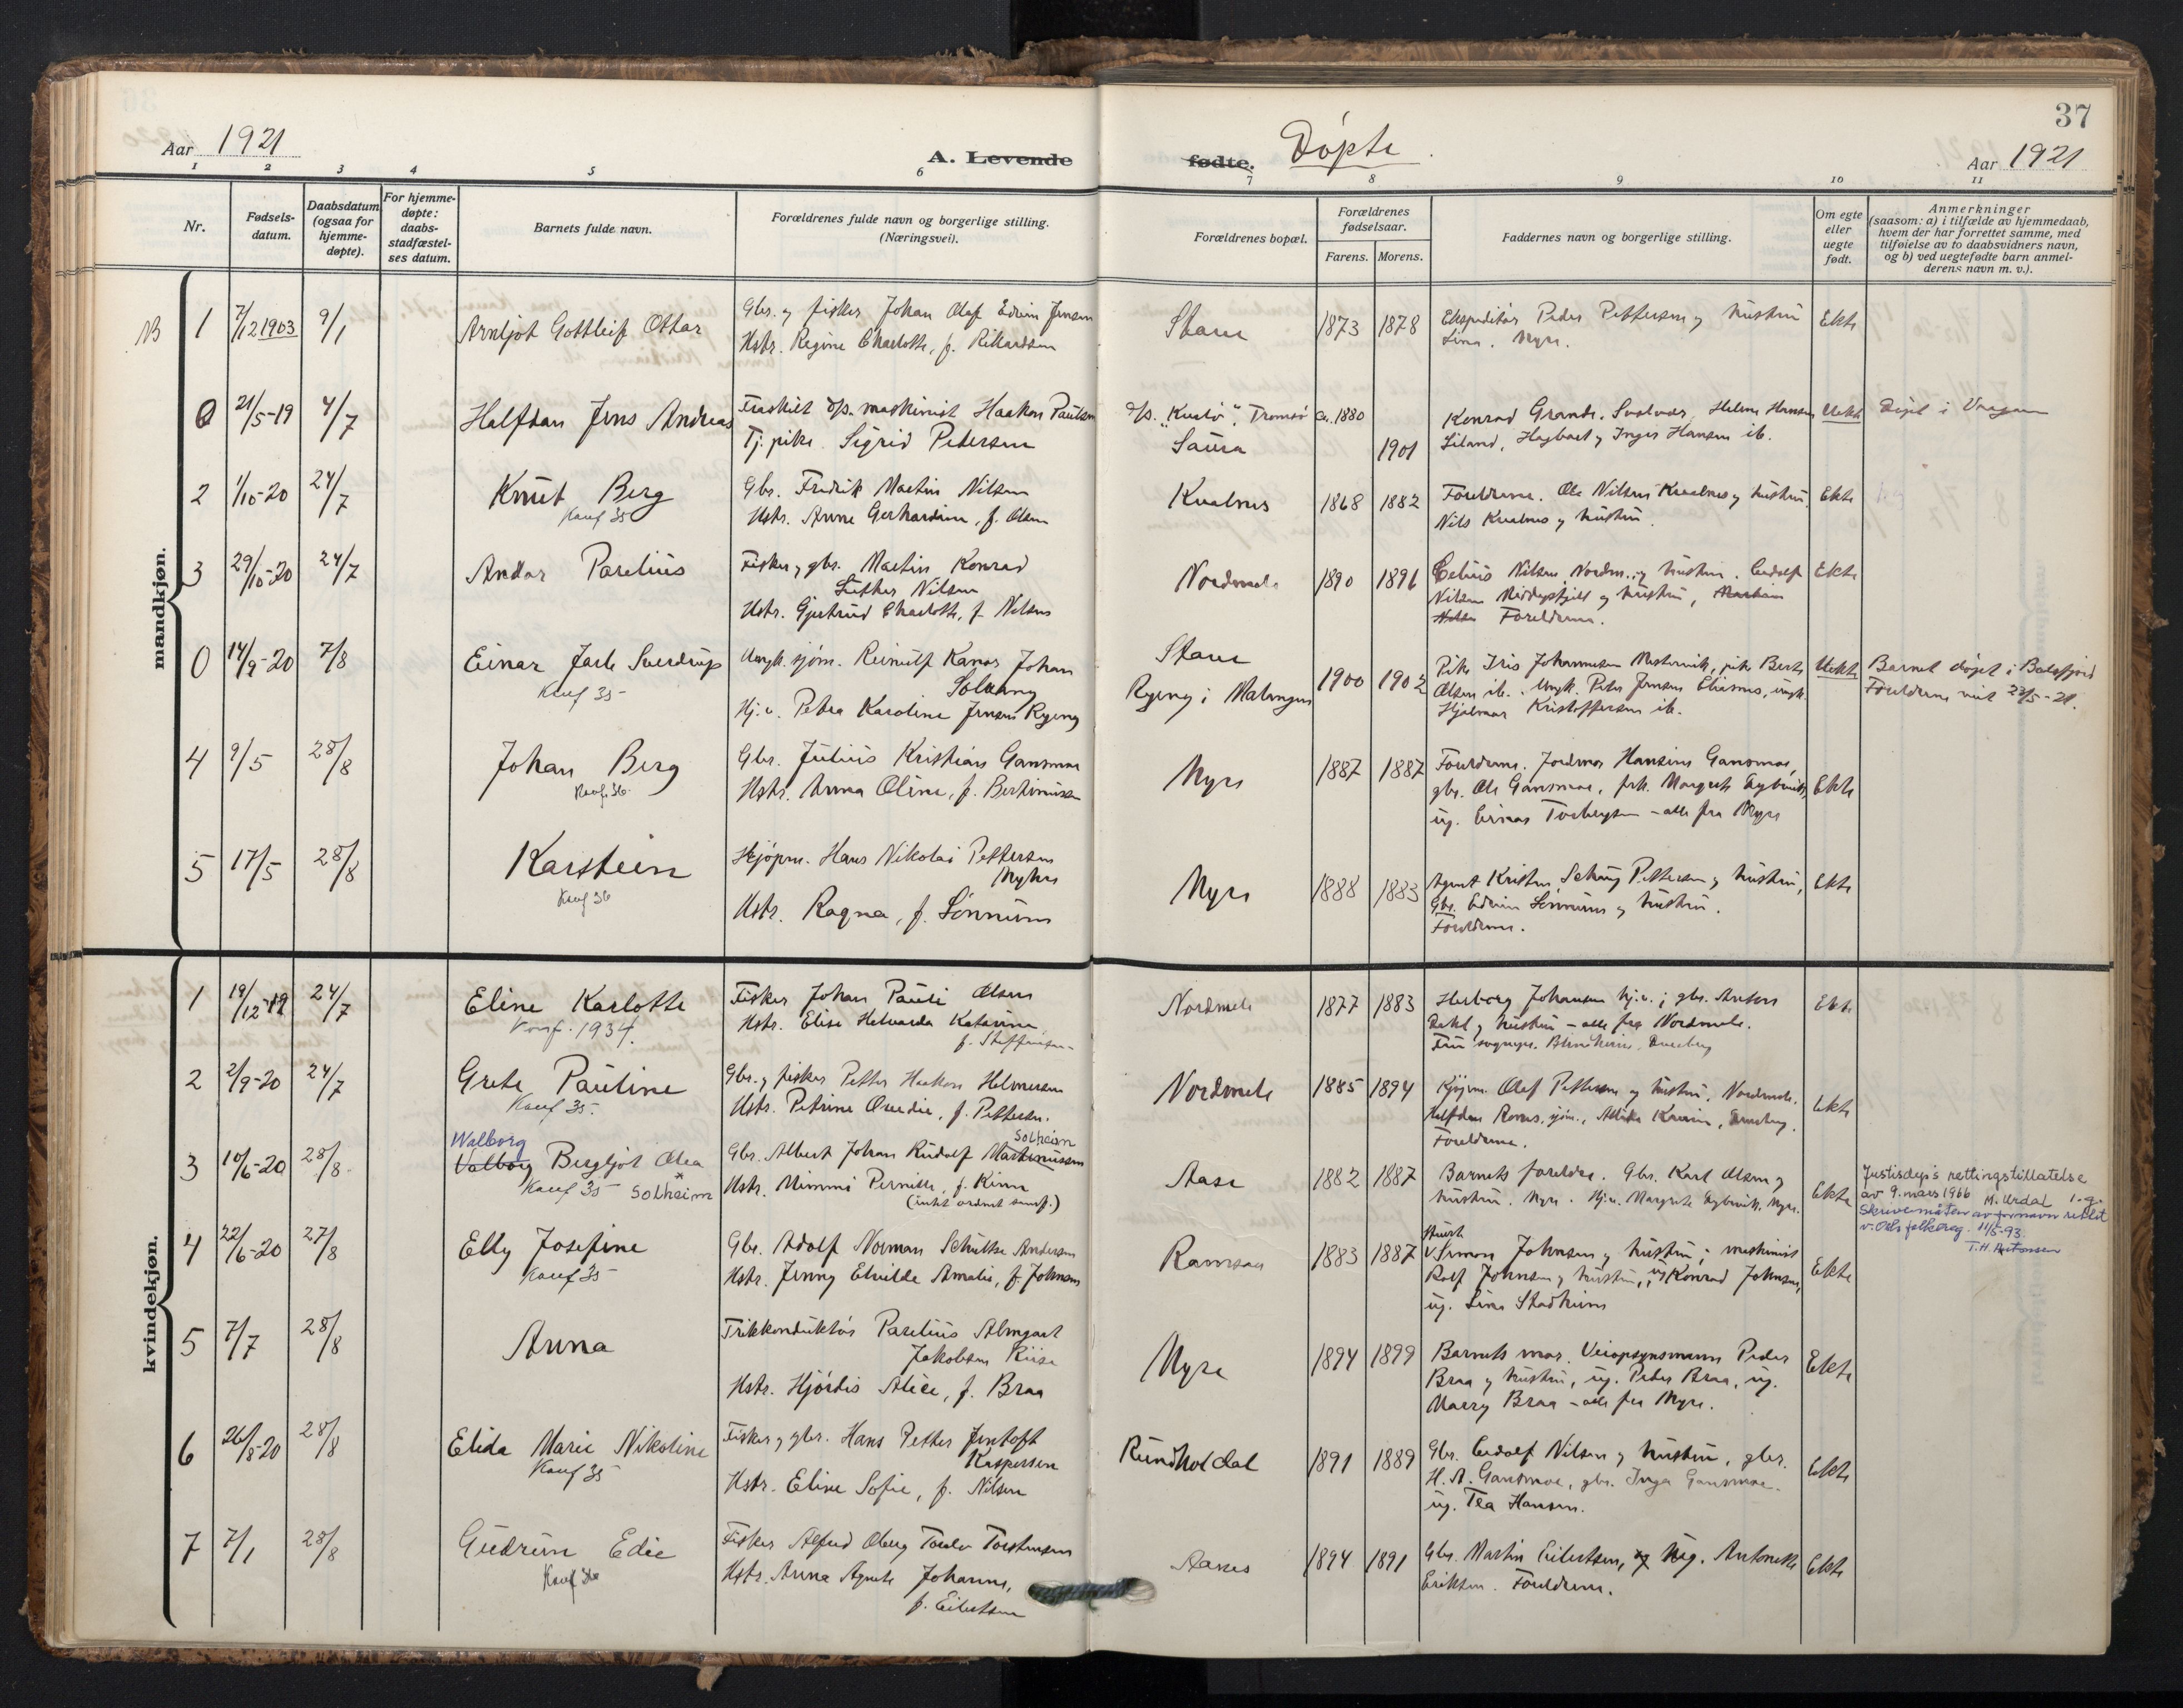 37
Aar 1921
A. Levende
fødte.
Døpte
Aar 1921
1 2 3 4 5 6 7 8 9 10 11
Nr.
Fødsels-
datum.
Daabsdatum
(ogsaa for
hjemme-
døpte).
For hjemme-
døpte:
daabs-
stadfæstel-
ses datum.
Barnets fulde navn.
Forældrenes fulde navn og borgerlige stilling.
(Næringsvei).
Forældrenes bopæl.
Forældrenes
fødselsaar.
Farens. Morens.
Faddernes navn og borgerlige stilling.
Om egte
eller
uegte
født.
Anmerkninger
(saasom: a) i tilfælde av hjemmedaab,
hvem der har forrettet samme, med
tilføielse av to daabsvidners navn,
og b) ved uegtefødte barn anmel-
derens navn m. v.).
mandkjøn.
NB 1 7/12 1903 9/1 Arnljot Gottleif Ottar
Gbr. og fisker Johan Olaf Edvin Jensen
Hstr. Regine Charlotte, f. Rikardsen
Stave 1873 1878
Ekspeditør Peder Pettersen og hustru
Lina. Myre.
Ekte
0 21/5-19 4/7 Halfdan Jens Andreas
Fraskilt d/s. maskinist Haakon Paulsen
Tj. pike Sigrid Petersen
d/s. "Kvitø", Tromsø ca. 1880
Saura 1901
Konrad Grande. Svolvær, Helene Hansen
Liland, Hagbart og Inger Hansen ib.
Uekte Døpt i Vaagan
2 1/10-20 24/7 Knut Berg
Konf 35
Gbr. Fredrik Martin Nilsen
Hstr. Anne Gerhardine, f. Olsen
Kvalnes 1868 1882
Foreldrene. Ole Nilsen Kvalnes og hustru
Nils Kvalnes og hustru.
Ekte
3 29/10-20 24/7 Andor Parelius
Fisker og gbr. Martin Konrad
Luther Nilsen
Hstr. Gjertrud Charlotte, f. Nilsen
Nordmele 1890 1896
Celius Nilsen, Nordm., og hustru. Ludolf
Nilsen og hustru,
Foreldrene.
Ekte
0 14/9-20 7/8 Einar Jarle Sverdrup
Konf 35
Ungk. sjøm. Reinulf Kanor Johan
Solvang
Hj.v. Petra Karoline Jensen Ryeng
Stave
Ryeng i Malangen 1900 1902
Pike Iris Johannesen Mestervik, pike Berte
Olsen ib. Ungk. Peter Jensen, ungk.
Hjalmar Kristoffersen ib.
Uekte
Barnet døpt i Balsfjord
Foreldrene viet 22/5-21.
4 9/5 28/8 Johan Berg
Konf. 36.
Gbr. Julius Kristian Gansmoe
Hstr. Anna Oline, f. Bertinusen
Myre 1887 1887
Foreldrene. Jordmor Hansine Gansmoe,
gbr. Ole Gansmoe, frk. Margrete Dybwik,
ug. Einar Torbergsen - alle fra Myre
Ekte
5 17/5 28/8 Karstein
Konf 36
Kjøpm. Hans Nikolai Pettersen
Myhre
Hstr. Ragna, f. Sørnum
Myre 1888 1883
Agent Kristen Schøug Pettersen og hustru,
Gbr. Edvin og hustru.
Foreldrene.
Ekte
kvindekjøn.
1 19/12-19 24/7 Eline Karlotte
Konf. 1934.
Fisker Johan Pauli Olsen
Hstr. Elise Helvarda Katarina,
f. Steffensen
Nordmele 1877 1883
Herborg Johansen hj.v.; gbr. Anton
Dahl og hustru - alle fra Nordmele.
Fru sogneprest
Ekte
2 2/9-20 24/7 Grete Pauline
Konf 35.
Gbr. og fisker Petter Haakon Helmersen
Hstr. Petrine Ovedie, f. Pettersen.
Nordmele 1885 1894
Kjøpm. Olaf Pettersen og hustru, Nordmele.
Halfdan sjøm.
Foreldrene.
Ekte
3 10/6-20 28/8 Walborg
Valborg Bergljot Olea
Konf 35 Solheim
Solheim
Gbr. Albert Johan Rudolf Martinussen
Hstr. Mimmi Pernille, f. Kinn
Aase 1882 1887
Barnets foreldre. Gbr. Karl Olsen og
hustru. Myre. Hj.v. Margrete Dybwik, Myre.
Ekte
Justisdep's rettingstillatelse
av 9. mars 1966 M. Urdal s.g.
Skrivemåten av fornavn rettet
v. folkereg. 11/5-93.
4 22/6-20 27/8 Elly Josefine
Konf 35
Gbr. Adolf Norman Schulke Andersen
Hstr. Jenny Elvilde Amalie, f. Johnsen
Ramsaa 1883 1887
Simon Johnsen og hustru; maskinist
Rolf Johnsen og hustru, ug Konrad Johnsen,
ug. Lina Stadheim
Ekte
5 7/7 28/8 Anna
Trikkonduktør Parelius Almgart
Jakobsen Riise
Hstr. Hjørdis Alice, f. Braa
Myre 1894 1899
Barnets mor. Veiopsynsmann Peder
Braa og hustru, ug. Peder Braa, ug.
Marry Braa - alle fra Myre.
Ekte
6 26/8-20 28/8 Elida Marie Nikoline
Konf 35
Fisker og gbr. Hans Petter Jentoft
Kaspersen
Hstr. Eline Sofie, f. Nilsen
Rundholdal 1891 1889
Gbr. Ludolf Nilsen og hustru, gbr.
H. A. Gansmoe, gbr. Inga Gansmoe.
ug. Tea Hansen.
Ekte
7 7/1 28/8 Gudrun Edie
Konf 36
Fisker Alfred Torstensen
Hstr. Anna Agnete Johanne,
f. Eilertsen
Aanes 1894 1891
Gbr. Martin Eilertsen, og ug. Antonette
Eriksen. Foreldrene.
Ekte